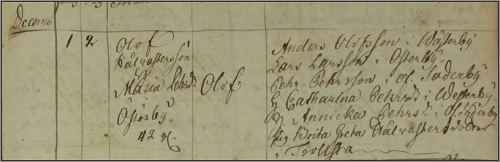 Decemb
1 2
Olof
Hälvastersson
Maria Pehrsd
Österby
42 år
Olof
Anders Olofsson i Wästerby
Lars Larsson i Österby
Pehr Pehrsson i Ol. Söderby
H Catharina Pehrsd i Westerby
H Annicka Pehrsd i Ol. Söderby
Pig Brita Greta Hälvastersdotter
i Trollsta